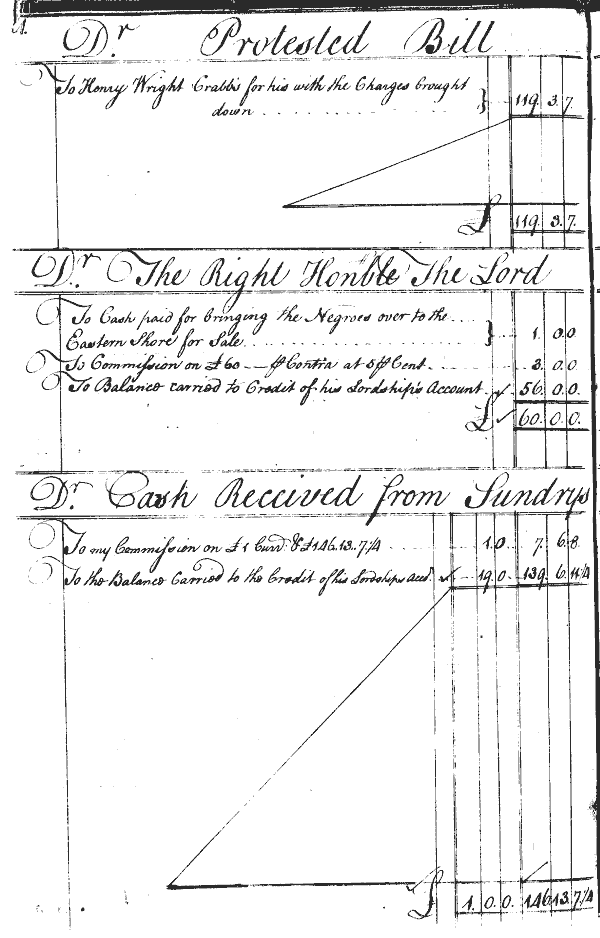 Dr Protested Bill
To Henry Wright Crabb for his with the Charges brought
down } 119. 3. 7.
£ 119. 3. 7.
Dr The Right Honble The Lord
To Cash paid for bringing the Negroes over to the
Eastern Shore for Sale } 1. 0.0
To Commission on £60 — ⅌ Contra at 5 ⅌ Cent 3. 0.0
To Balance carried to Credit of his Lordship's Account 56. 0.0.
£ 60. 0.0.
Dr Cash Received from Sundrys
To my Commission on £1 Curr. & £146.13.7¼ 1.0 7. 6.8
To the Balance Carried to the Credit of his Lordships Acct. 19.0 139. 6.11¼
£ 1. 0. 0. 146.13.7¼